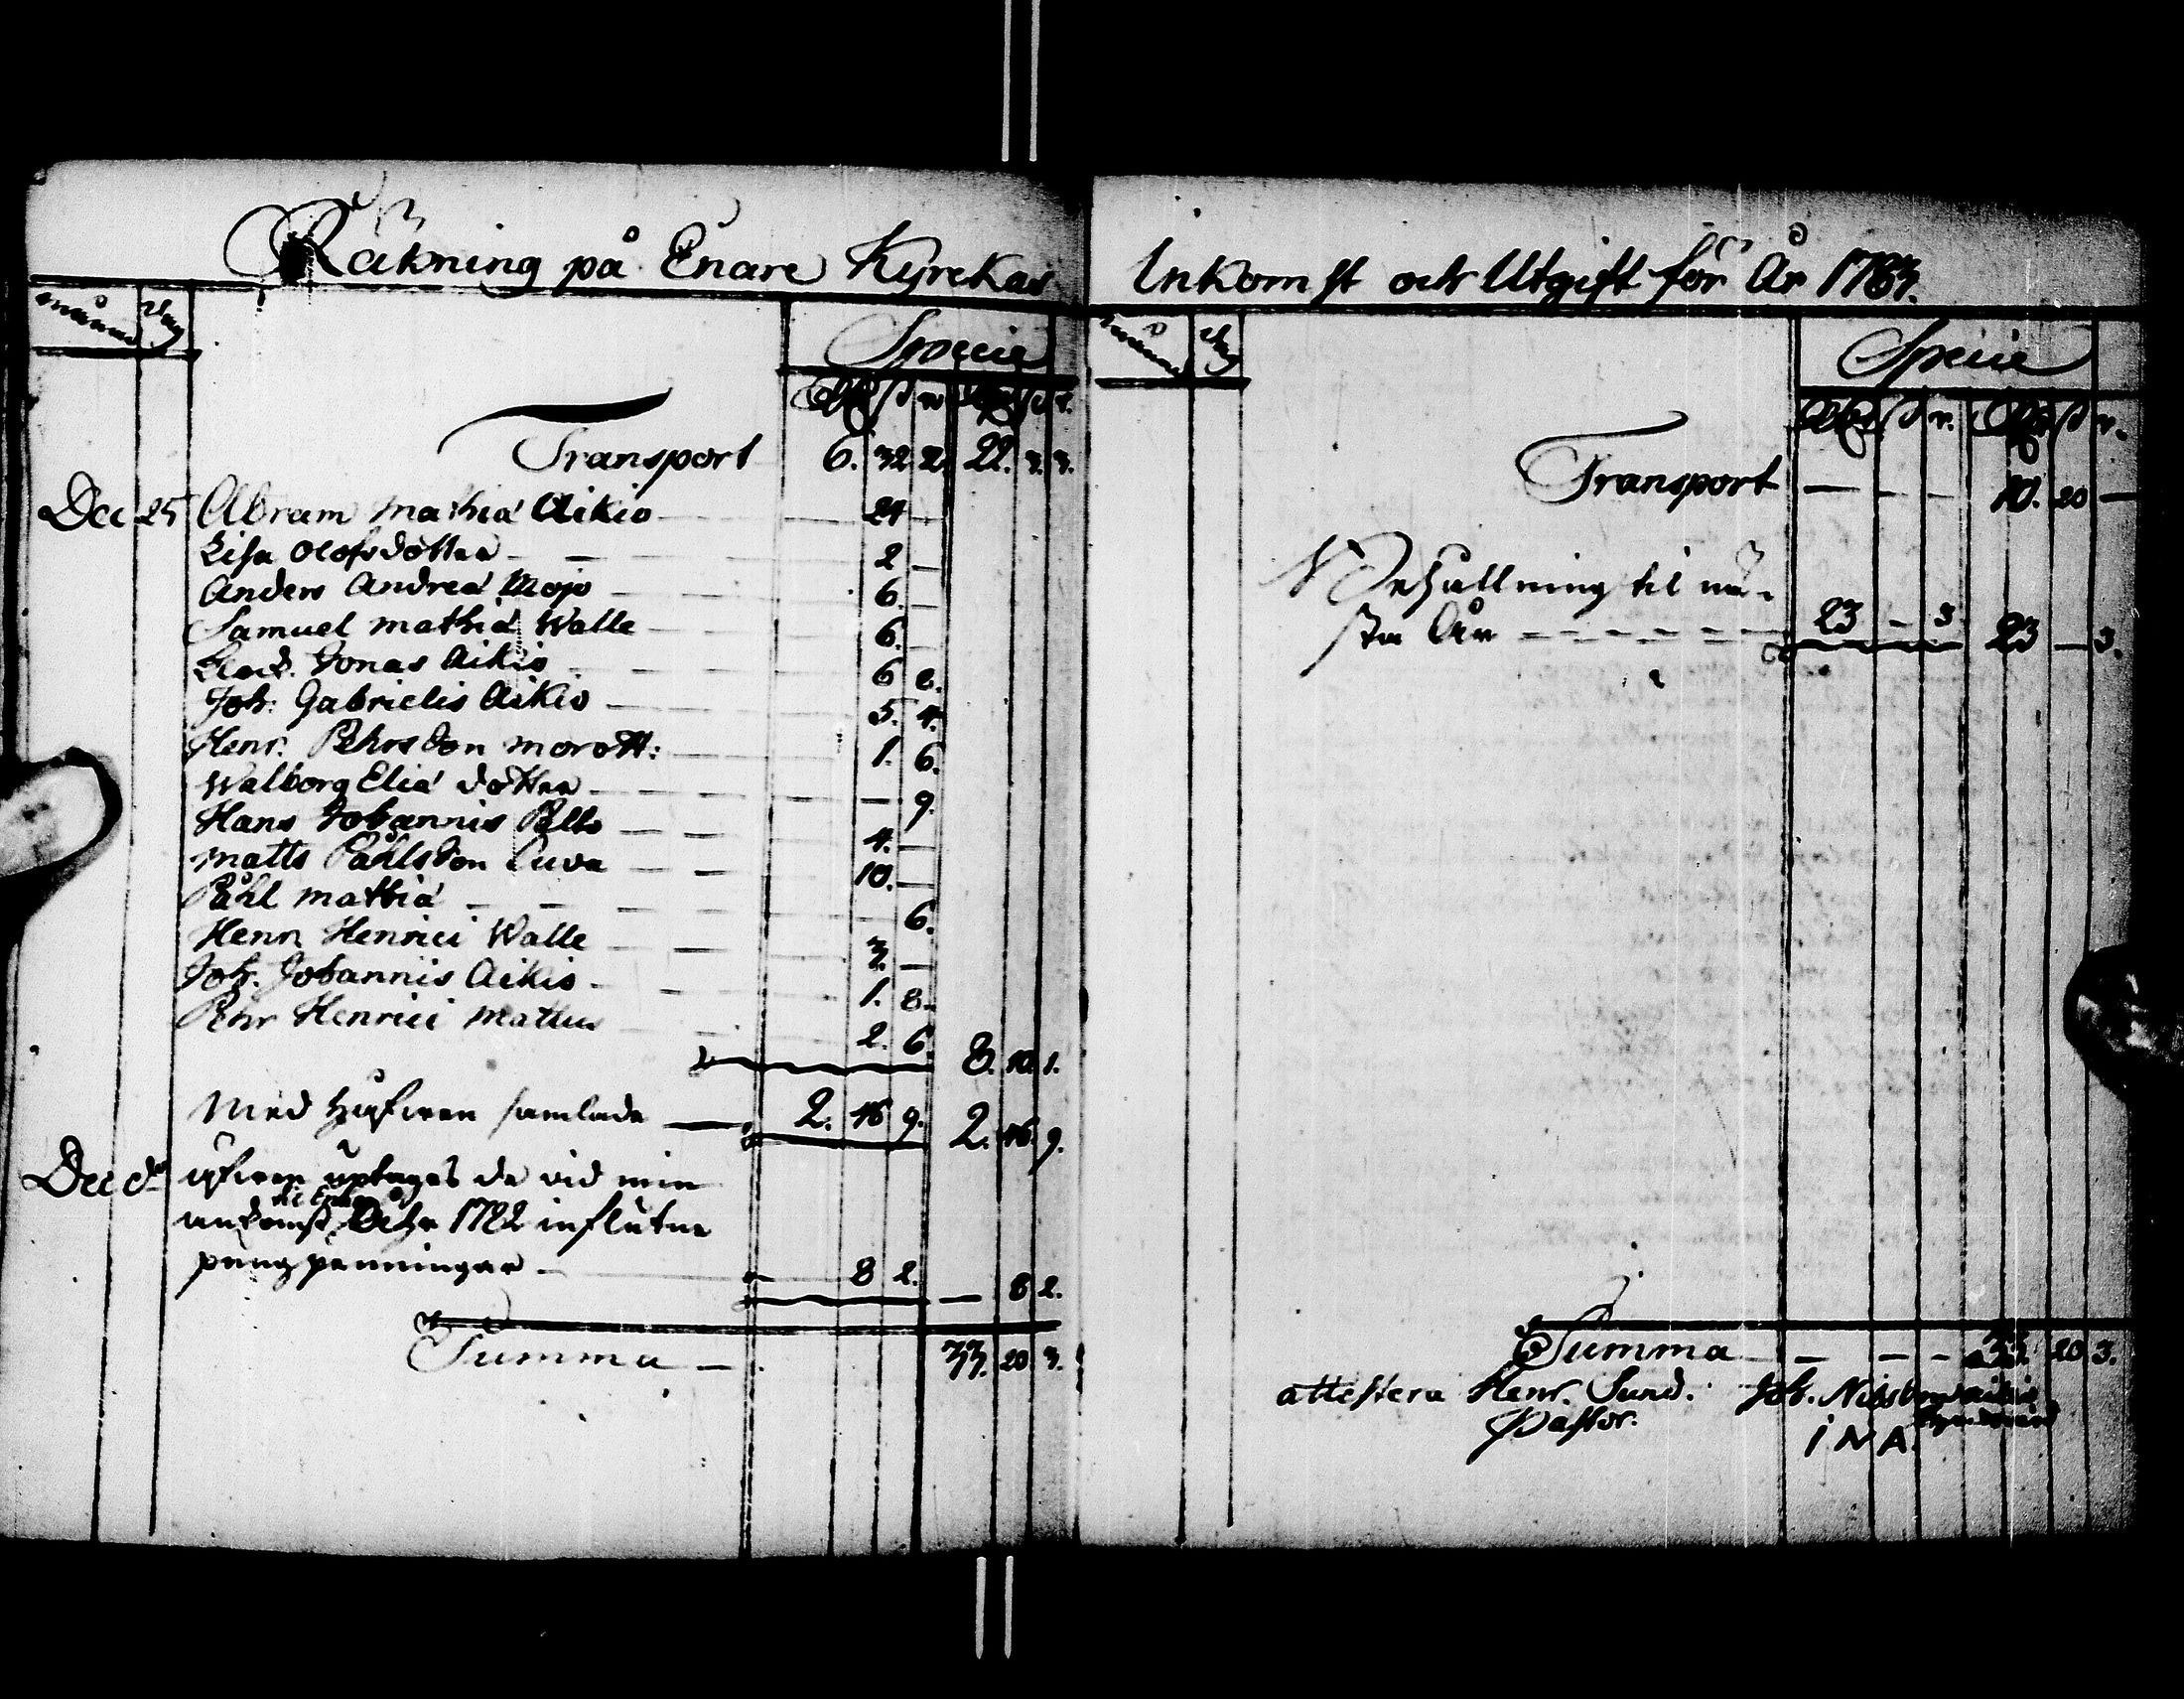 Räkning på Enare Kyrckas
Månad Dag
Specie
Rdr s r. Rdr s r.
Transport 6. 32. 2. 22. 3. 3.
Dec 25 Abram Mathiæ Aikio — 24 —
Lisa Olofsdotter — — 2 —
Anders Andreæ Mojo — 6. —
Samuel Mathiæ Walle — 6. —
Klock. Jonas Aikio — 6 8.
Joh: Gabrielis Aikio — 5. 4.
Henr. Pehrsson Morott: — 1. 6.
Walborg Eliæ dotter — — 9.
Hans Johannis Palto — 4. —
Matts Påhlsson Cuva — 10. —
Påhl Mathiæ — — 6.
Henr. Henrici Walle — 3. —
Joh. Johannis Aikio — 1. 8.
Pehr Henrici Mattus — 2. 6. 8. 10. 1.
Med Håfwen samlade — 2. 16 9. 2. 16. 9.
Dec do uptages de vid min
ankomst 1782 influtne
pungpenningar — 8 2. — 8 2.
Summa — 33. 20 3.
Inkomst och Utgift för År 1783.
Månad Dag
Specie
Rdr s r. Rdr s r.
Transport — — — 10. 20 —
Behållning til nä-
sta År — — — 23 — 3. 23 — 3.
Summa — — — 33. 20 3.
attestera Henr. Sund. Joh. Nilsson Aikio
Pastor. Kyrckovärd
I N A.